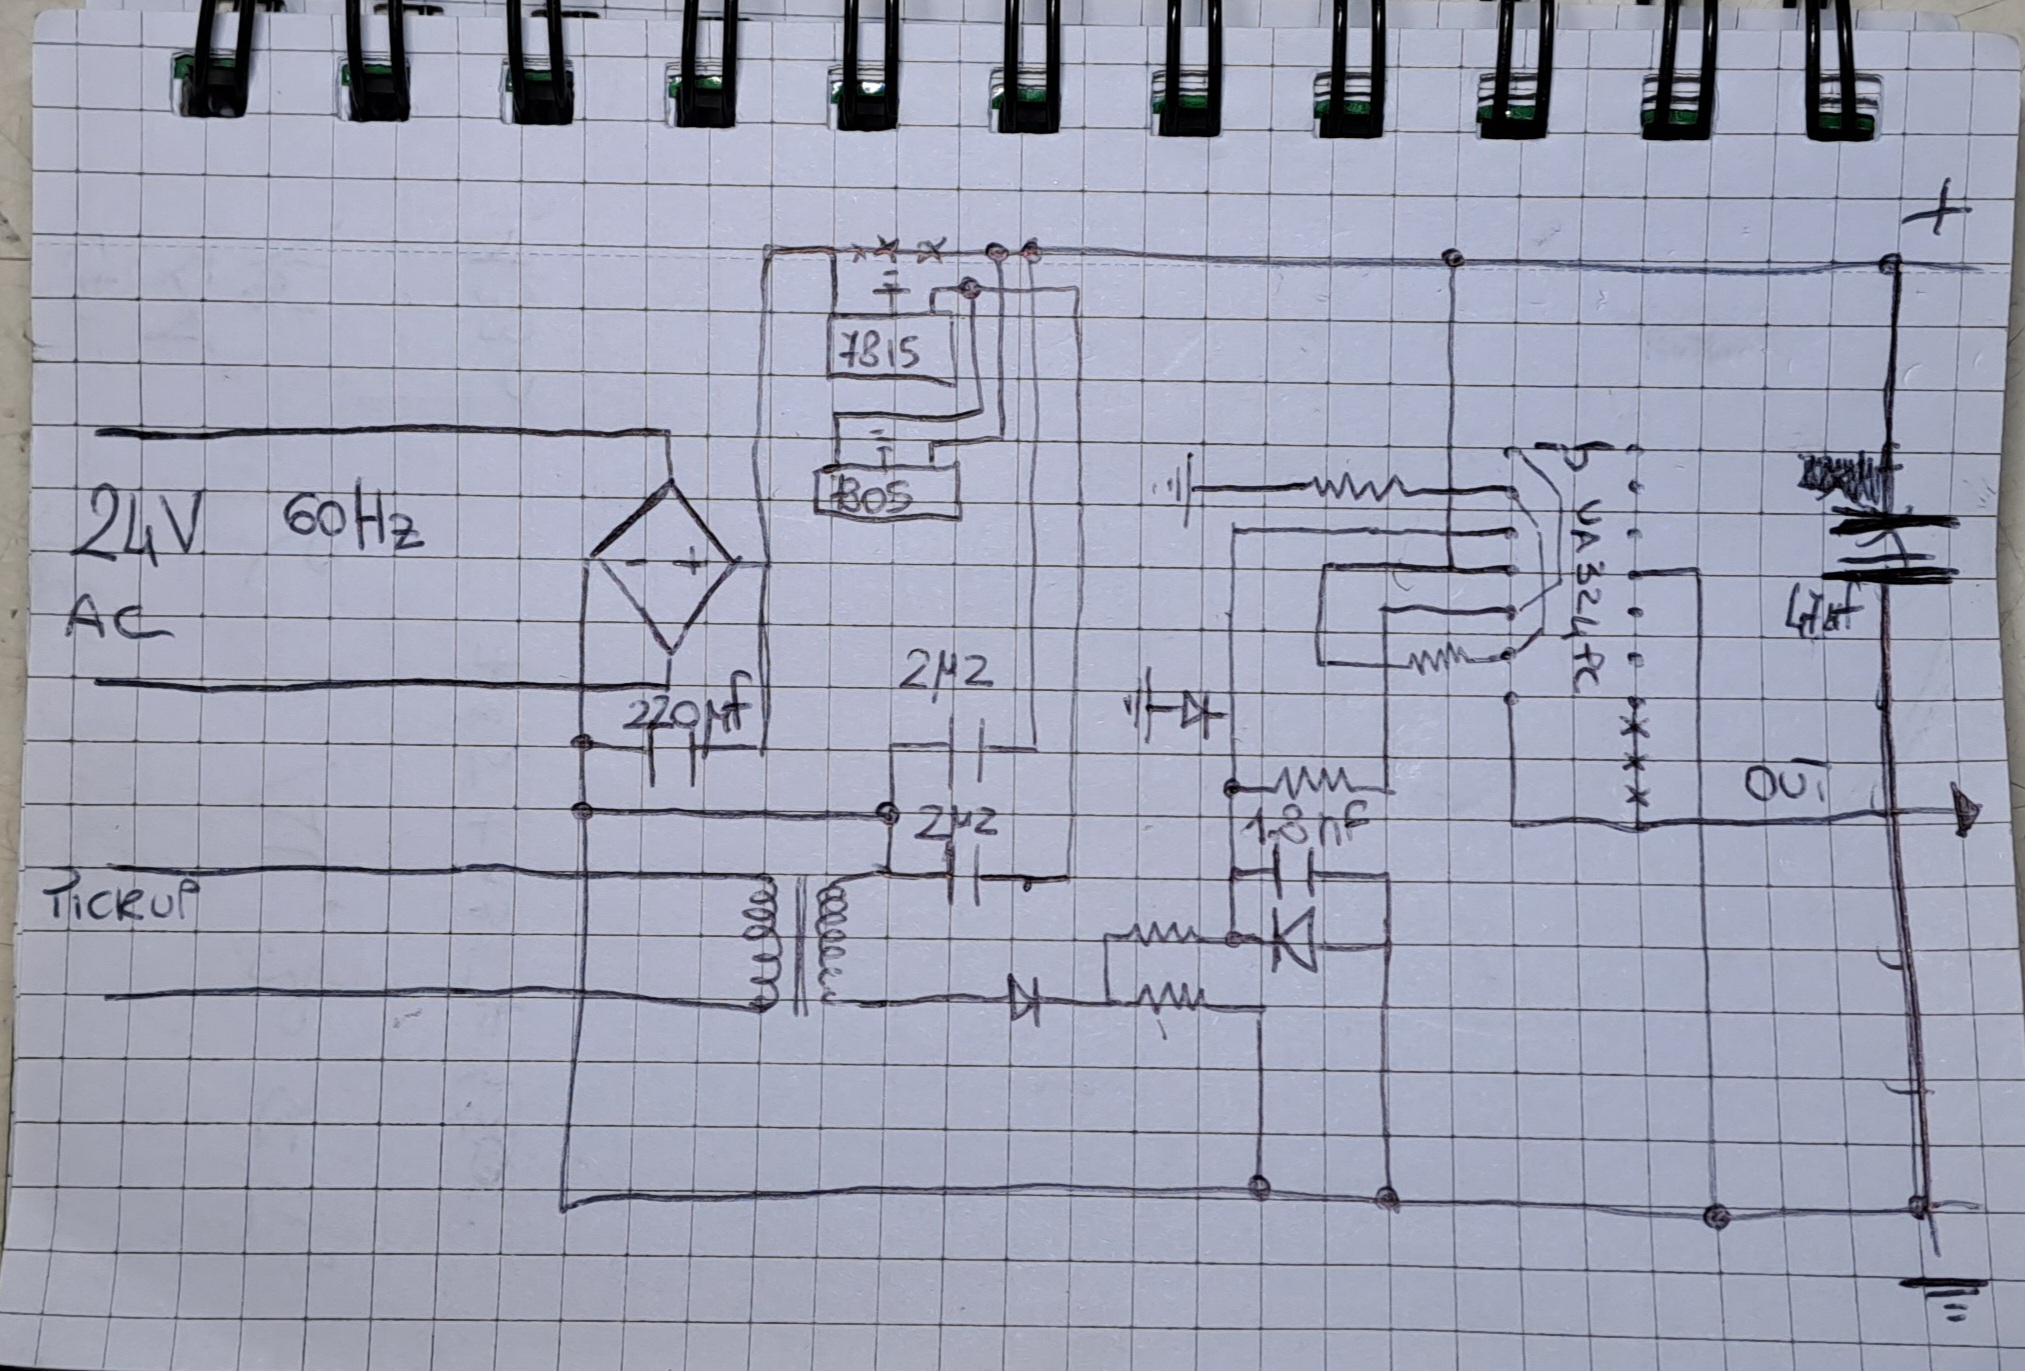 +
7815
7805
24V 60Hz
AC
UA324PC
47µf
220µf
2µ2
OUT
2µ2
1.8nF
PICKUP